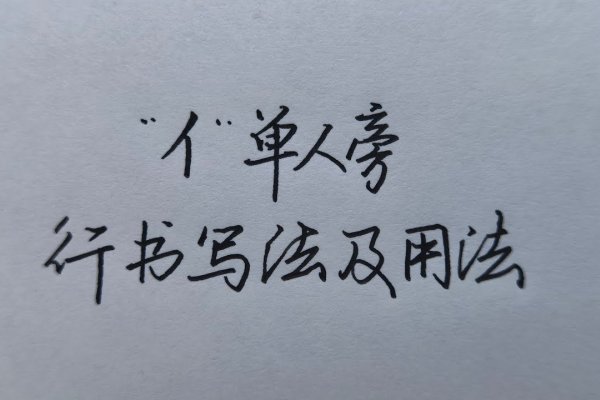 "亻"单人旁
行书写法及用法